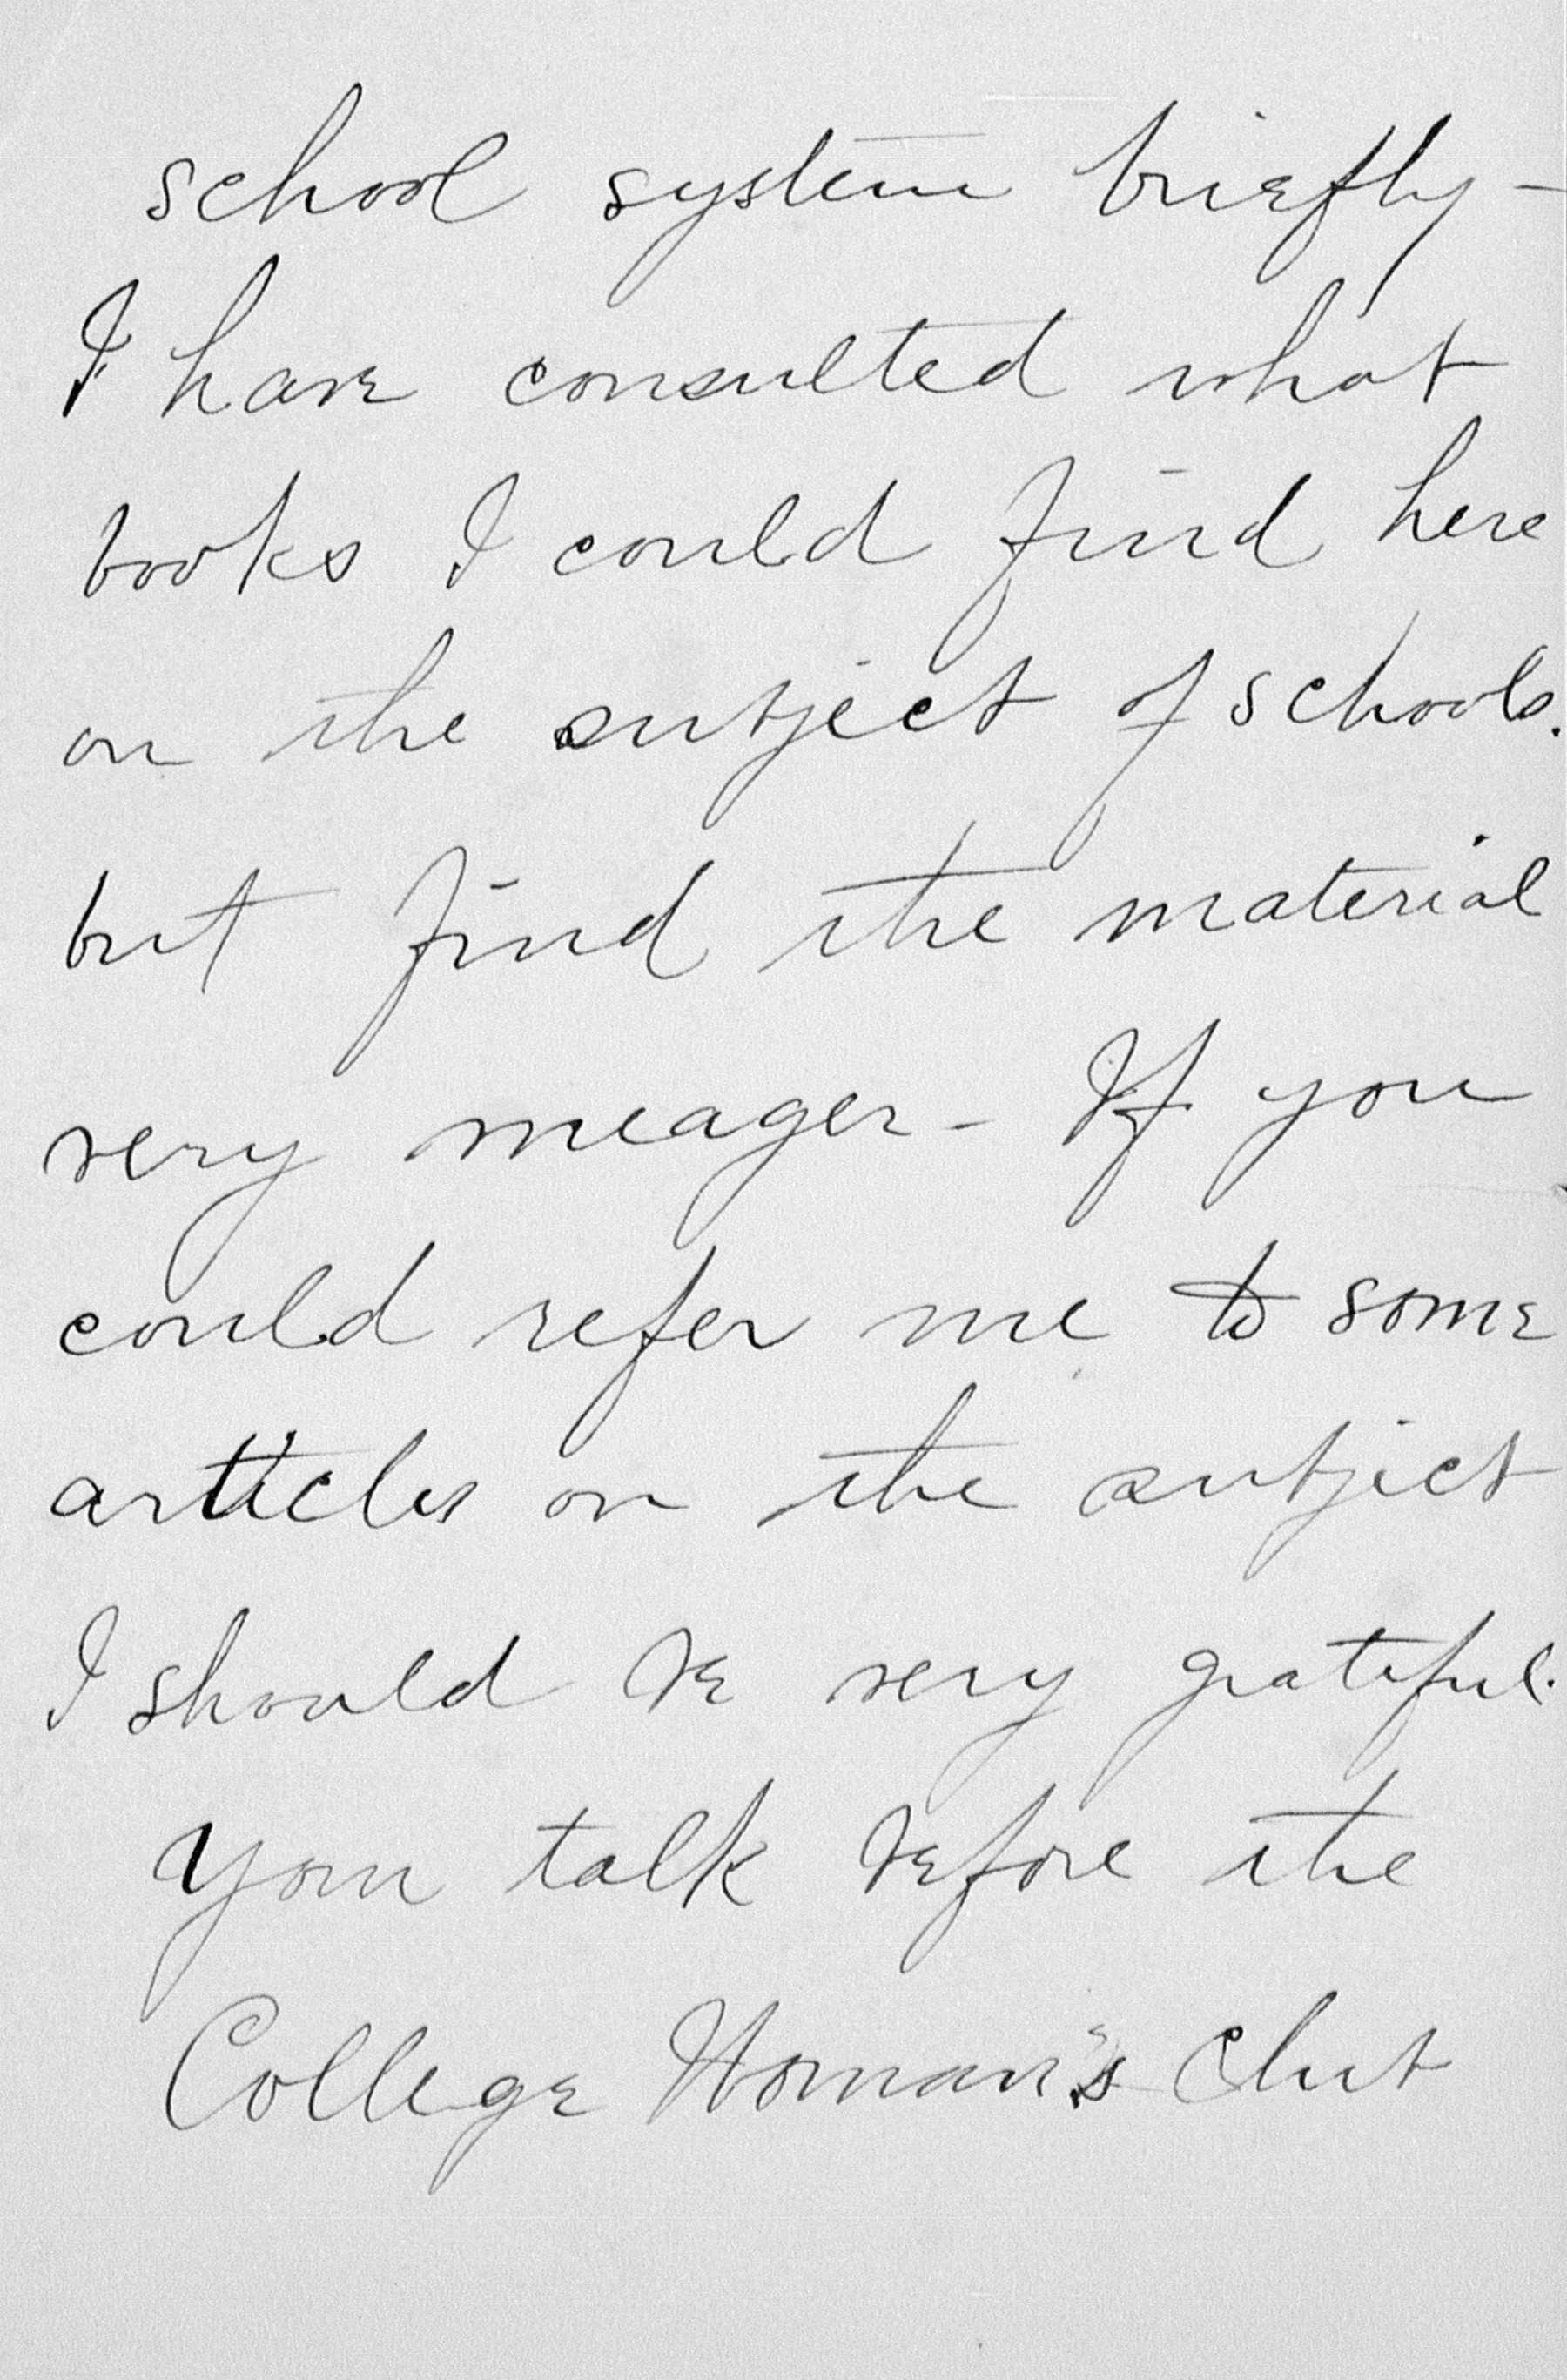 school system briefly –
I have consulted what
books I could find here
on the subject of schools.
but find the material
very meager – If you
could refer me to some
articles on the subject
I should be very grateful.
Your talk before the
College Woman's Club